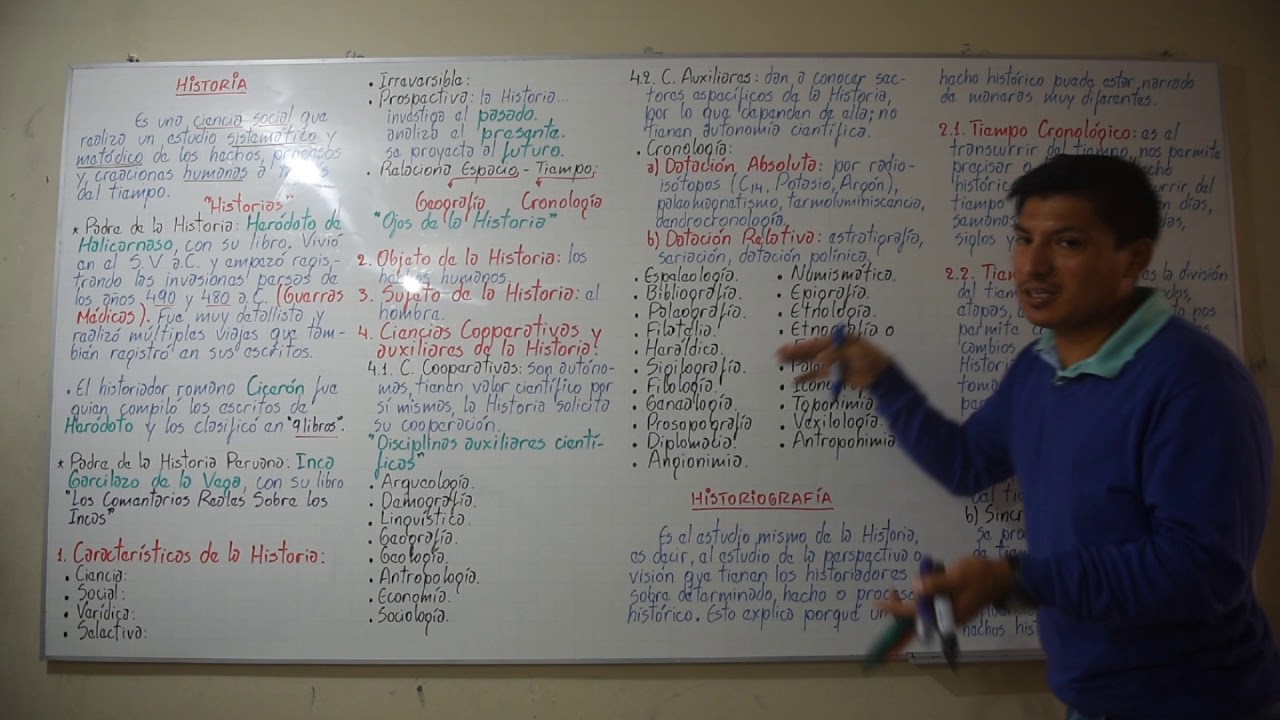 HISTORIA
Es una ciencia social que
realiza un estudio sistemático y
metódico de los hechos, procesos
y creaciones humanas a
del tiempo.
"Historias"
* Padre de la Historia: Heródoto de
Halicarnaso, con su libro. Vivió
en el S. V a.C. y empezó regis-
trando las invasiones persas de
los años 490 y 480 a.C. (Guerras
Médicas). Fue muy detallista y
realizó múltiples viajes que tam-
bién registró en sus escritos.
• El historiador romano Cicerón fue
quien compiló los escritos de
Heródoto y los clasificó en "9 libros".
* Padre de la Historia Peruana: Inca
Garcilazo de la Vega, con su libro
"Los Comentarios Reales Sobre los
Incas"
1. Características de la Historia:
• Ciencia:
• Social:
• Verídica:
• Selectiva:
• Irreversible:
• Prospectiva: la Historia...
investiga el pasado.
analiza el presente.
se proyecta al futuro.
• Relaciona Espacio - Tiempo:
Geografía Cronología
"Ojos de la Historia"
2. Objeto de la Historia: los
hechos humanos.
3. Sujeto de la Historia: el
hombre.
4. Ciencias Cooperativas y
auxiliares de la Historia:
4.1. C. Cooperativas: son autóno-
mas, tienen valor científico por
sí mismas, la Historia solicita
su cooperación.
"Disciplinas auxiliares cientí-
ficas"
• Arqueología.
• Demografía.
• Linguística.
• Geografía.
• Geología.
• Antropología.
• Economía.
• Sociología.
4.2. C. Auxiliares: dan a conocer sec-
tores específicos de la Historia,
por lo que dependen de ella; no
tienen autonomía científica.
• Cronología:
a) Datación Absoluta: por radio-
isótopos (C14, Potasio, Argón),
paleomagnetismo, termoluminiscencia,
dendrocronología.
b) Datación Relativa: estratigrafía,
seriación, datación polínica.
• Espeleología.
• Bibliografía.
• Paleografía.
• Filatelia.
• Heráldica.
• Sigilografía.
• Filología.
• Genealogía.
• Prosopografía
• Diplomacia.
• Angionimia.
• Numismática.
• Epigrafía.
• Etnología.
• Etnografía o
• Toponimia
• Vexilología.
• Antroponimia
HISTORIOGRAFÍA
Es el estudio mismo de la Historia,
es decir, al estudio de la perspectiva o
visión que tienen los historiadores
sobre determinado, hecho o proceso
histórico. Esto explica porqué un
hecho histórico puede estar narrado
de maneras muy diferentes.
2.1. Tiempo Cronológico: es el
transcurrir del tiempo, nos permite
precisar
del
tiempo días,
semanas
siglos y
2.2. es la división
del
etapas, nos
permite
cambios
b)
se
de
hechos